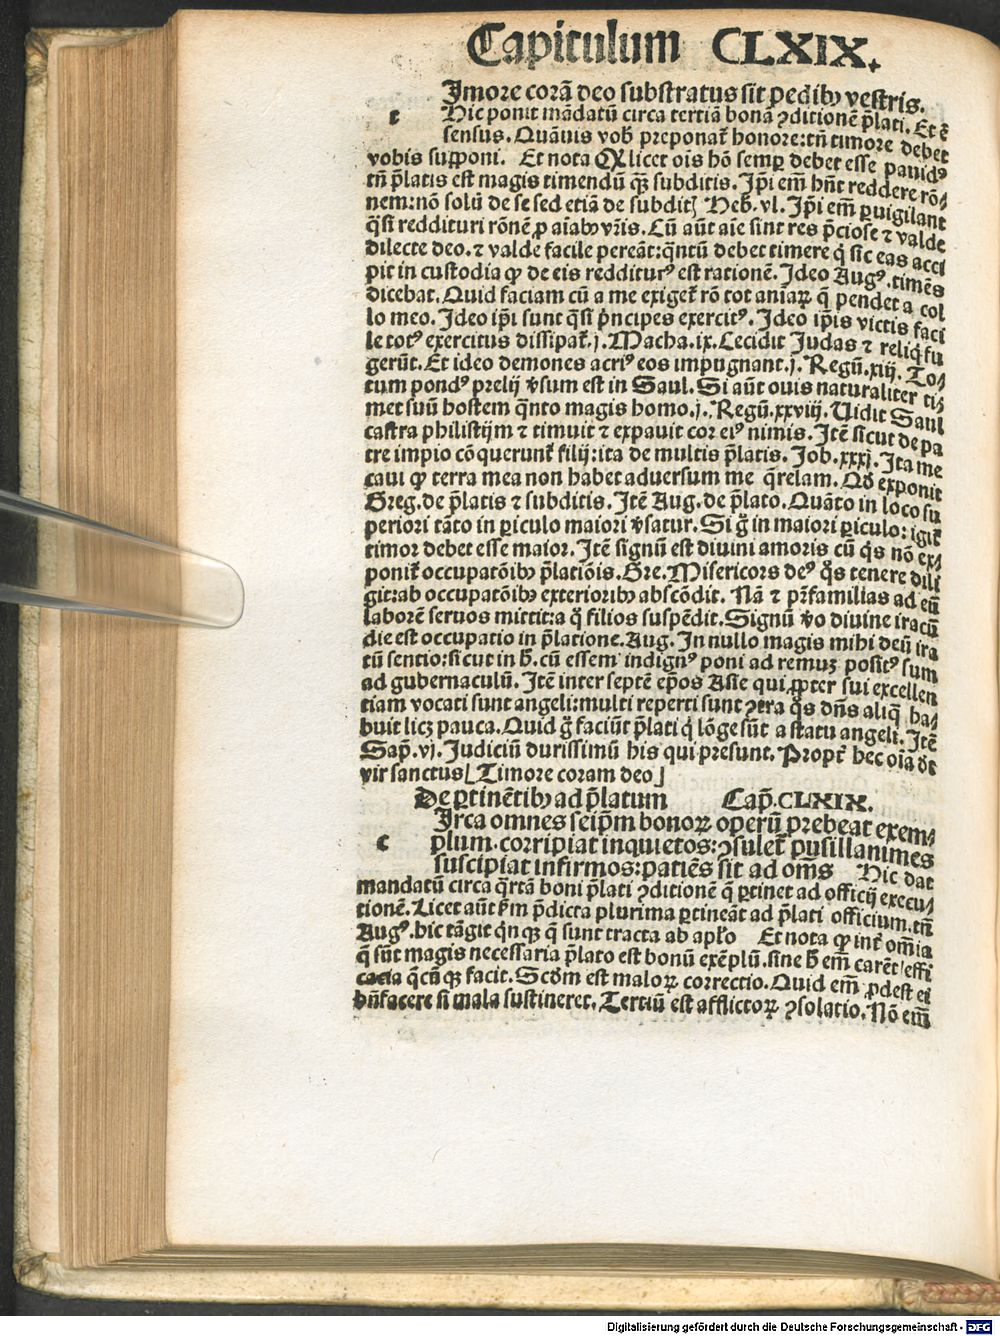 Capitulum CLXIX.
Imore corā deo substratus sit pedibꝰ vestris.
t Hic ponit mādatū circa tertiā bonā ꝯditionē p̄lati. Et ē
sensus. Quāuis vob̄ preponat᷑ honore: tn̄ timore debet
vobis supponi. Et nota ꝙ licet oīs hō semꝑ debet esse pauidꝰ
tn̄ p̄latis est magis timendū qꝫ subditis. Ip̄i em̄ hn̄t reddere rō⸗
nem: nō solū de se sed etiā de subdit᷒ Heb̄. vl. Ip̄i em̄ ꝑuigilant
q̄si reddituri rōnē ꝓ aīabꝰ vr̄is. Cū aūt aīe sint res p̄ciose ⁊ valde
dilecte deo. ⁊ valde facile pereāt: qn̄tū debet timere q̇ sic eas acci
pit in custodia ꝙ de eis redditurꝰ est rationē. Ideo Augꝰ. timēs
dicebat. Quid faciam cū a me exiget᷑ rō tot aniaꝝ q̄ pendēt a col
lo meo. Ideo ip̄i sunt q̄si p̄ncipes exercitꝰ. Ideo ip̄is victis faci
le totꝰ exercitus dissipat᷑. j. Macha. ix. Cecidit Judas ⁊ reliq̇ fu
gerūt. Et ideo demones acriꝰ eos impugnant. j. Regū. xiij. To⸗
tum pondꝰ prelij v̓sum est in Saul. Si aūt ouis naturaliter ti⸗
met suū hostem q̄nto magis homo. j. Regū. xxviij. Uidit Saul
castra philistijm ⁊ timuit ⁊ expauit cor eiꝰ nimis. Itē sicut de pa
tre impio cōquerunt᷑ filij: ita de multis p̄latis. Job. xxxj. Ita me
caui ꝙ terra mea non habet aduersum me q̄relam. Qd̓ exponit
Greg. de p̄latis ⁊ subditis. Itē Aug. de p̄lato. Quāto in loco su
periori tāto in ꝑiculo maiori v̓satur. Si g̊ in maiori ꝑiculo: igit᷑
timor debet esse maior. Itē signū est diuini amoris cū q̊s nō ex⸗
ponit᷑ occupatōibꝰ p̄latiōis. Gre. Misericors deꝰ q̊s tenere dili
git: ab occupatōibꝰ exterioribꝰ abscōdit. Nā ⁊ pr̄familias ad eū
laborē seruos mittit: a q̊ filios suspēdit. Signū v̊o diuine iracū
die est occupatio in p̄latione. Aug. In nullo magis mihi deū ira
tū sentio: sicut in h̄. cū essem indignꝰ poni ad remuꝫ positꝰ sum
ad gubernaculū. Itē inter septē ep̄os Asie qui ꝓpter sui excellen
tiam vocati sunt angeli: multi reperti sunt ꝯtra q̊s dn̄s aliq̄ ha⸗
buit licꝫ pauca. Quid g̊ faciūt p̄lati q̇ lōge sūt a statu angeli. Itē
Sap̄. vj. Judiciū durissimū his qui presunt. Propt᷑ hec oīa dt̄
vir sanctus [Timore coram deo]
De ꝑtinētibꝰ ad p̄latum Cap̄. CLXIX.
Irca omnes seip̄m bonoꝝ operū prebeat exem⸗
c plum. corripiat inquietos: ꝯsulet᷑ pusillanimes
suscipiat infirmos: patiēs sit ad om̄s Hic dat
mandatū circa q̄rtā boni p̄lati ꝯditionē q̄ ꝑtinet ad officij execu⸗
tionē. Licet aūt s̄m p̄dicta plurima ꝑtineāt ad p̄lati officium. tn̄
Augꝰ. hic tāgit qn̄qꝫ q̄ sunt tracta ab apl̄o Et nota ꝙ int᷑ om̄ia
q̄ sūt magis necessaria p̄lato est bonū exēplū. sine h̄ em̄ carēt effi
cacia q̄cūqꝫ facit. Scd̓m est maloꝝ correctio. Quid em̄ ꝓdest ei
bn̄facere si mala sustineret. Tertiū est afflictoꝝ ꝯsolatio. Nō em̄
Digitalisierung gefördert durch die Deutsche Forschungsgemeinschaft - DFG